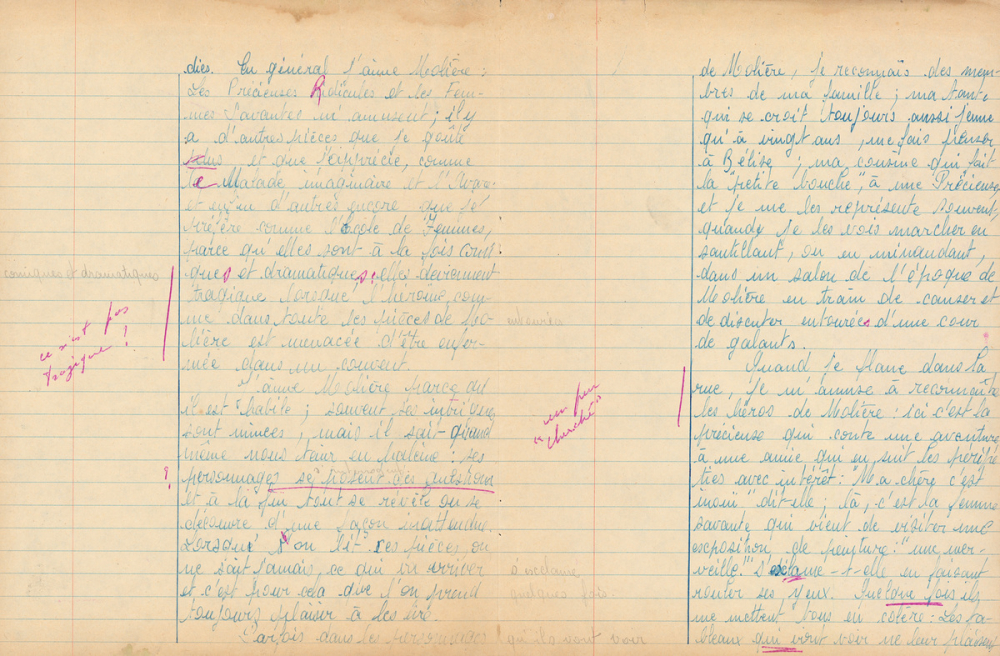 dies. En général j'aime Molière :
Les Précieuses Ridicules et les Fem-
mes Savantes m'amusent ; il y
a d'autres pièces que je goûte
plus, et que j'apprécie, comme
le Malade imaginaire et l'Avare
et enfin d'autres encore que je
préfère comme l'Ecole de Femmes,
parce qu'elles sont à la fois comi-
ques et dramatiques ; elles deviennent
tragiques lorsque l'héroïne, com-
me dans toute les pièces de Mo-
lière est menacée d'être enfer-
mée dans un couvent.
J'aime Molière parce qu'
il est habile ; souvent, ses intrigues
sont minces, mais il sait quand
même nous tenir en haleine : ses
personnages se posent des questions
et à la fin tout se révèle ou se
découvre d'une façon inattendue.
Lorsque l'on lit ces pièces on
ne sait jamais ce qui va arriver
et c'est pour cela que l'on prend
toujours plaisir à les lire.
Parfois dans les personnages
comiques et dramatiques
ce n'est pas
tragique !
?
entourées
à exclamé
quelques fois
qu'ils vont voir
de Molière, je reconnais des mem-
bres de ma famille ; ma tante
qui se croit toujours aussi jeune
qu'à vingt ans, me fais penser
à Bélise ; ma cousine qui fait
la "petite bouche", à une Précieuse
et je me les représente souvent,
quand je les vois marcher en
sautillant, ou en minaudant,
dans un salon de l'époque de
Molière en train de causer et
de discuter, entourées d'une cour
de galants.
Quand je flane dans la
rue, je m'amuse à reconnaître
les héros de Molière : ici c'est la
précieuse qui conte une aventure
à une amie qui en suit les péripé-
ties avec intérêt : "Ma chère c'est
inouï" dit-elle ; là, c'est la femme
savante qui vient de visiter une
exposition de peinture : "une mer-
veille !" s'exclame-t-elle en faisant
rouler ses yeux. Quelque fois ils
me mettent tous en colère : Les ta-
bleaux qui vont voir ne leur plaisent
un peu
cherché